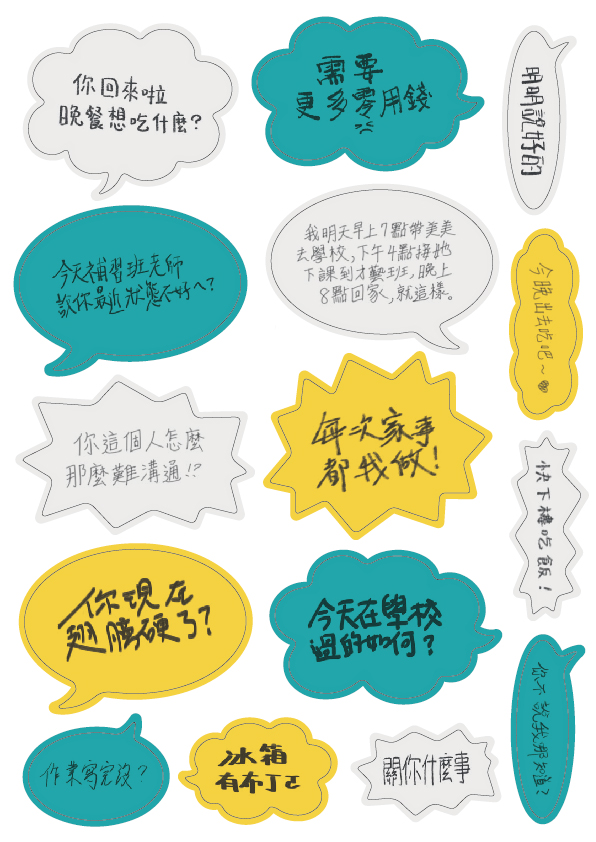 你回來啦
晚餐想吃什麼?
需要
更多零用錢
明明說好的
今天補習班老師
說你最近狀態不好ㄟ?
我明天早上7點帶美美
去學校,下午4點接她
下課到才藝班,晚上
8點回家,就這樣。
今晚出去吃吧~
你這個人怎麼
那麼難溝通!?
每次家事
都我做!
快下樓吃飯!
你現在
翅膀硬了?
今天在學校
過的如何?
你不說我哪知道?
作業寫完沒?
冰箱
有布丁ㄛ
關你什麼事